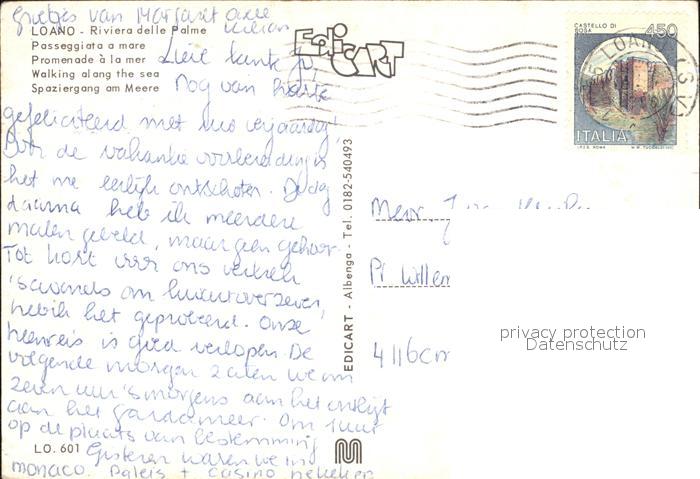 Groetjes van Margaret
LOANO - Riviera delle Palme
Passeggiata a mare
Promenade à la mer
Walking along the sea
Spaziergang am Meere
EdiCART
CASTELLO DI
450
LOANO (SV)
ITALIA
I.P.Z.S. ROMA
Lieve tante
Nog van harte
gefeliciteerd met uw verjaardag!
Door de vakantie voorbereidingen is
het me eerlijk ontschoten. De dag
daarna heb ik meerdere
malen gebeld, maar geen gehoor.
Tot kort voor ons vertrek
's avonds om
heb ik het geprobeerd. Onze
heenreis is goed verlopen. De
volgende morgen zaten we om
zeven uur 's morgens aan het ontbijt
aan het gardameer. Om 1 uur
op de plaats van bestemming
Gisteren waren we in
monaco. Paleis + casino
LO. 601
EDICART - Albenga - Tel. 0182-540493
Mevr.
Pr Willem
4116
privacy protection
Datenschutz